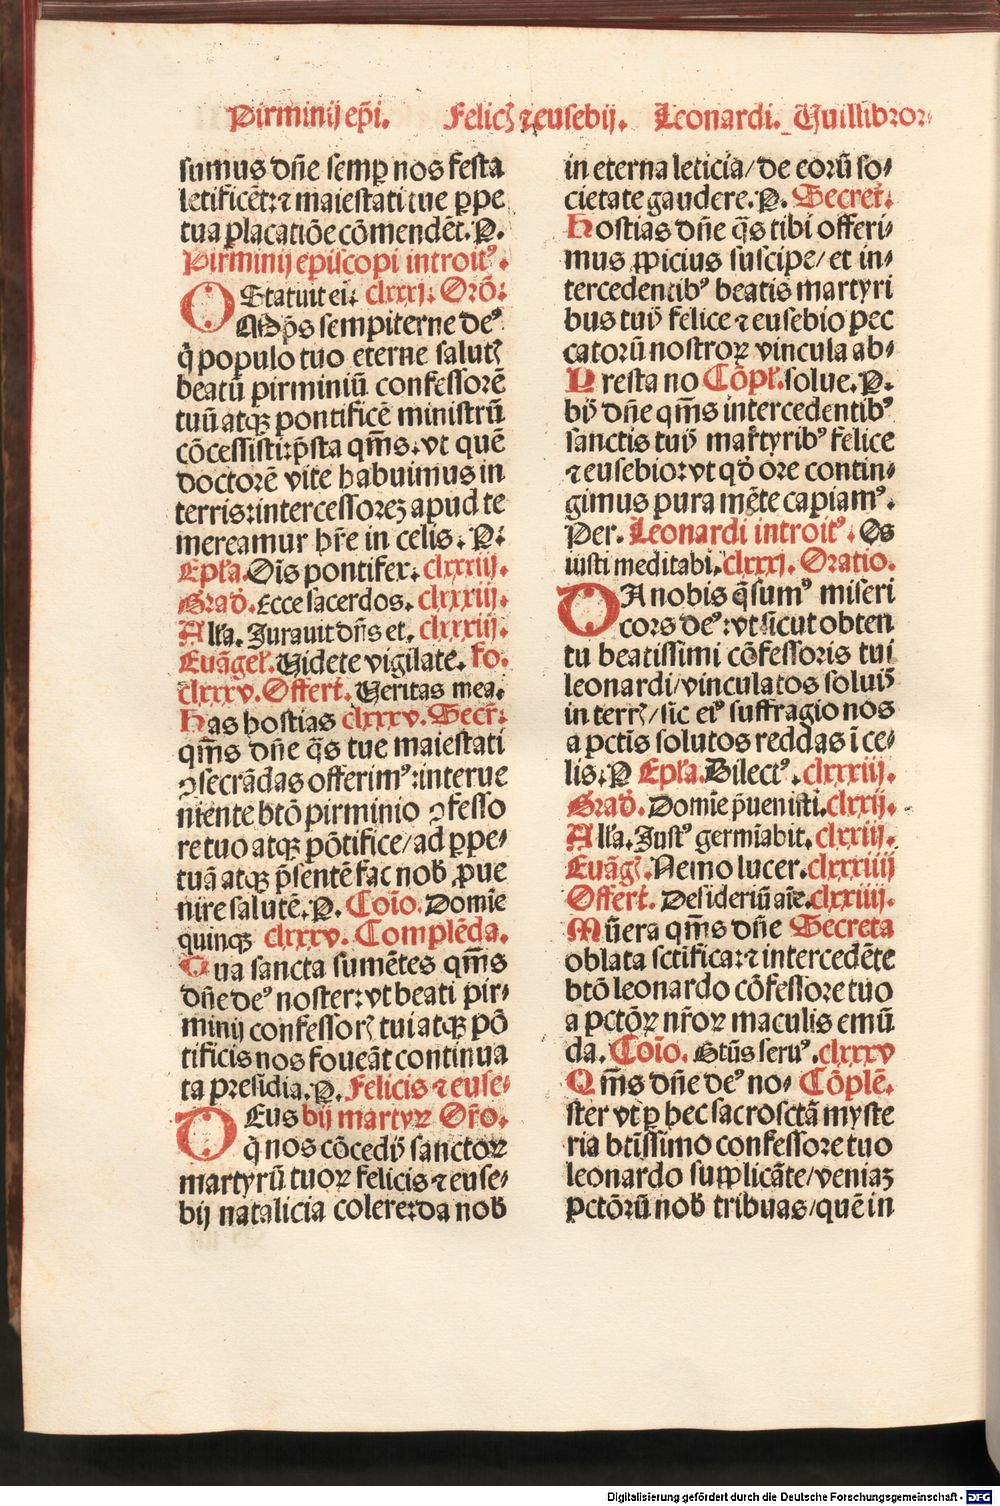 Pirminij ep̄i. Felicꝭ ⁊ eusebij. Leonardi. Uuillibꝛoꝛ:
sumus dn̄e semꝑ nos festa
letificēt:⁊ maiestati tue ꝑpe
tua placatiōe cōmendēt. P.
Pirminij episcopi introitꝰ.
Statuit ei. clxxxj. Orō:
OMp̄s sempiterne deꝰ
q̄ populo tuo eterne salutꝭ
beatū pirminiū confessoꝛē
tuū atqꝫ pontificē ministrū
cōcessisti:p̄sta qm̄s.vt quē
doctoꝛē vite habuimus in
terris:intercessoꝛeꝫ apud te
mereamur hr̄e in celis. P:
Epl̄a. Ois pontifex. clxxxiij.
Grad̄. Ecce sacerdos. clxxxiij.
All̄a. Jurauit dn̄s et. clxxxiij.
Euāgel̄. Uidete vigilate. fo.
clxxxv. Offert̄. Ueritas mea.
Has hostias clxxxv. Secr̄:
qm̄s dn̄e q̄s tue maiestati
ꝯsecrādas offerimꝰ:interue
niente btō pirminio ꝯfesso
re tuo atqꝫ pōtifice/ad ꝑpe⸗
tuā atqꝫ p̄sentē fac nob̄ ꝓue
nire salutē. P. Coīo. Domīe
quinqꝫ clxxxv. Complēda.
Tua sancta sumētes qm̄s
dn̄e deꝰ noster:vt beati pir⸗
minij confessoꝛꝭ tui atqꝫ pō
tificis nos foueāt continua
ta presidia. P. Felicis ⁊ euse⸗
DEus bij martyꝝ Or̄o.
q̄ nos cōcedꝭ sanctoꝝ
martyrū tuoꝝ felicis ⁊ euse⸗
bij natalicia colere:da nob̄
in eterna leticia/de eoꝛū so⸗
cietate gaudere. P. Secret̄.
Hostias dn̄e q̄s tibi offeri⸗
mus ꝓpicius suscipe/et in⸗
tercedentibꝰ beatis martyri
bus tuꝭ felice ⁊ eusebio pec
catoꝛū nostroꝝ vincula ab⸗
Presta no Cōpl̄. solue. P.
bꝭ dn̄e qm̄s intercedentibꝰ
sanctis tuꝭ mar̄tyribꝰ felice
⁊ eusebio:vt qd̄ oꝛe contin⸗
gimus pura mēte capiamꝰ.
Per. Leonardi introitꝰ. Os
iusti meditabi. clxxxj. Oratio.
DA nobis q̄sumꝰ miseri
coꝛs deꝰ:vt sicut obten
tu beatissimi cōfessoꝛis tui
leonardi/vinculatos soluꝭ
in terrꝭ/sic eiꝰ suffragio nos
a pctīs solutos reddas ī ce⸗
lis. P Epl̄a. Dilectꝰ. clxxxiij.
Grad̄. Domīe p̄uenisti. clxxij.
All̄a. Justꝰ germīabit. clxxiij.
Euāgꝭ. Nemo lucer. clxxxiiij
Offert̄. Desideriū aīe. clxxiiij.
Mūera qm̄s dn̄e Secreta
oblata sctīfica:⁊ intercedēte
btō leonardo cōfessoꝛe tuo
a pctōꝝ nr̄oꝝ maculis emū
da. Coīo. Btūs seruꝰ. clxxxv
Qm̄s dn̄e deꝰ no⸗ Cōplē.
ster vt ꝑ hec sacrosctā myste
ria btīssimo confessoꝛe tuo
leonardo supplicāte/veniaꝫ
pctōꝛū nob̄ tribuas/quē in
Digitalisierung gefördert durch die Deutsche Forschungsgemeinschaft - DFG